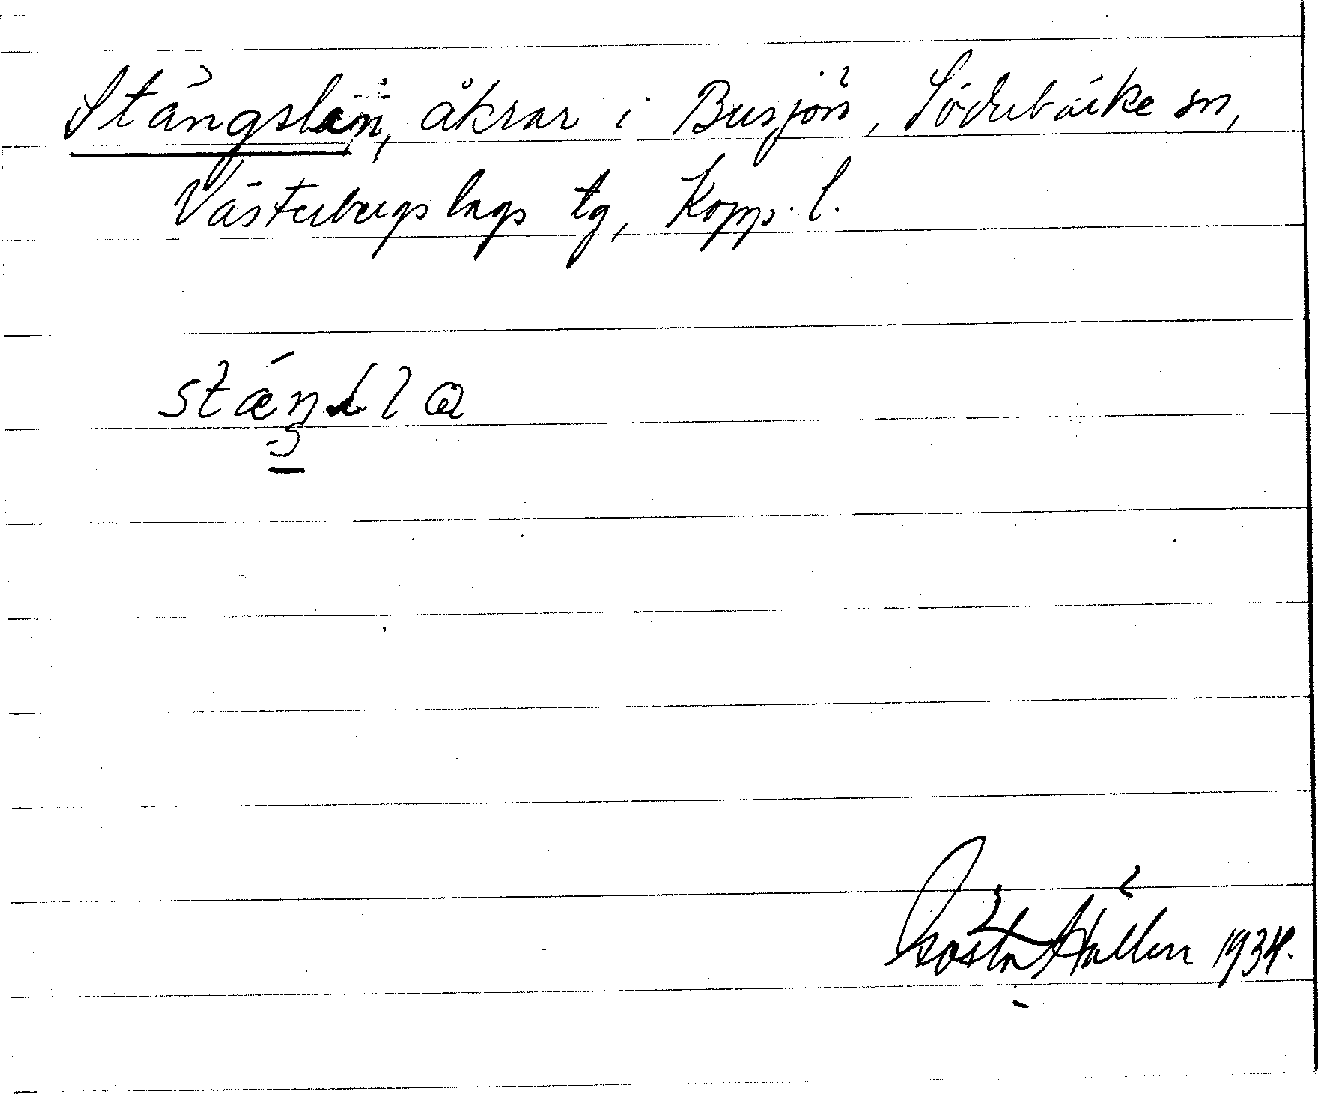 Stängslan, åkrar i Busjön, Söderbärke sn,
Västerbergslags tg, Kopp. l.
Gösta Hallén 1934.